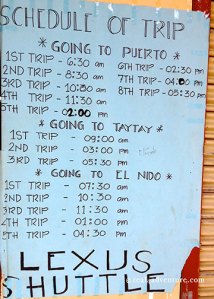 SCHEDULE OF TRIP
* GOING TO PUERTO *
1ST TRIP - 6:30 am 6TH TRIP - 02:30 pm
2ND TRIP - 8:30 am 7TH TRIP - 04:00 pm
3RD TRIP - 10:30 am 8TH TRIP - 05:30 pm
4TH TRIP - 11:30 am
5TH TRIP - 02:00 pm
* GOING TO TAYTAY *
1ST TRIP - 09:00 am
2ND TRIP - 03:00 pm
3RD TRIP - 05:30 pm
* GOING TO EL NIDO *
1ST TRIP - 07:30 am
2ND TRIP - 10:30 am
3RD TRIP - 11:30 am
4TH TRIP - 01:00 pm
5TH TRIP - 04:30 pm
LEXUS
SHUTTLE